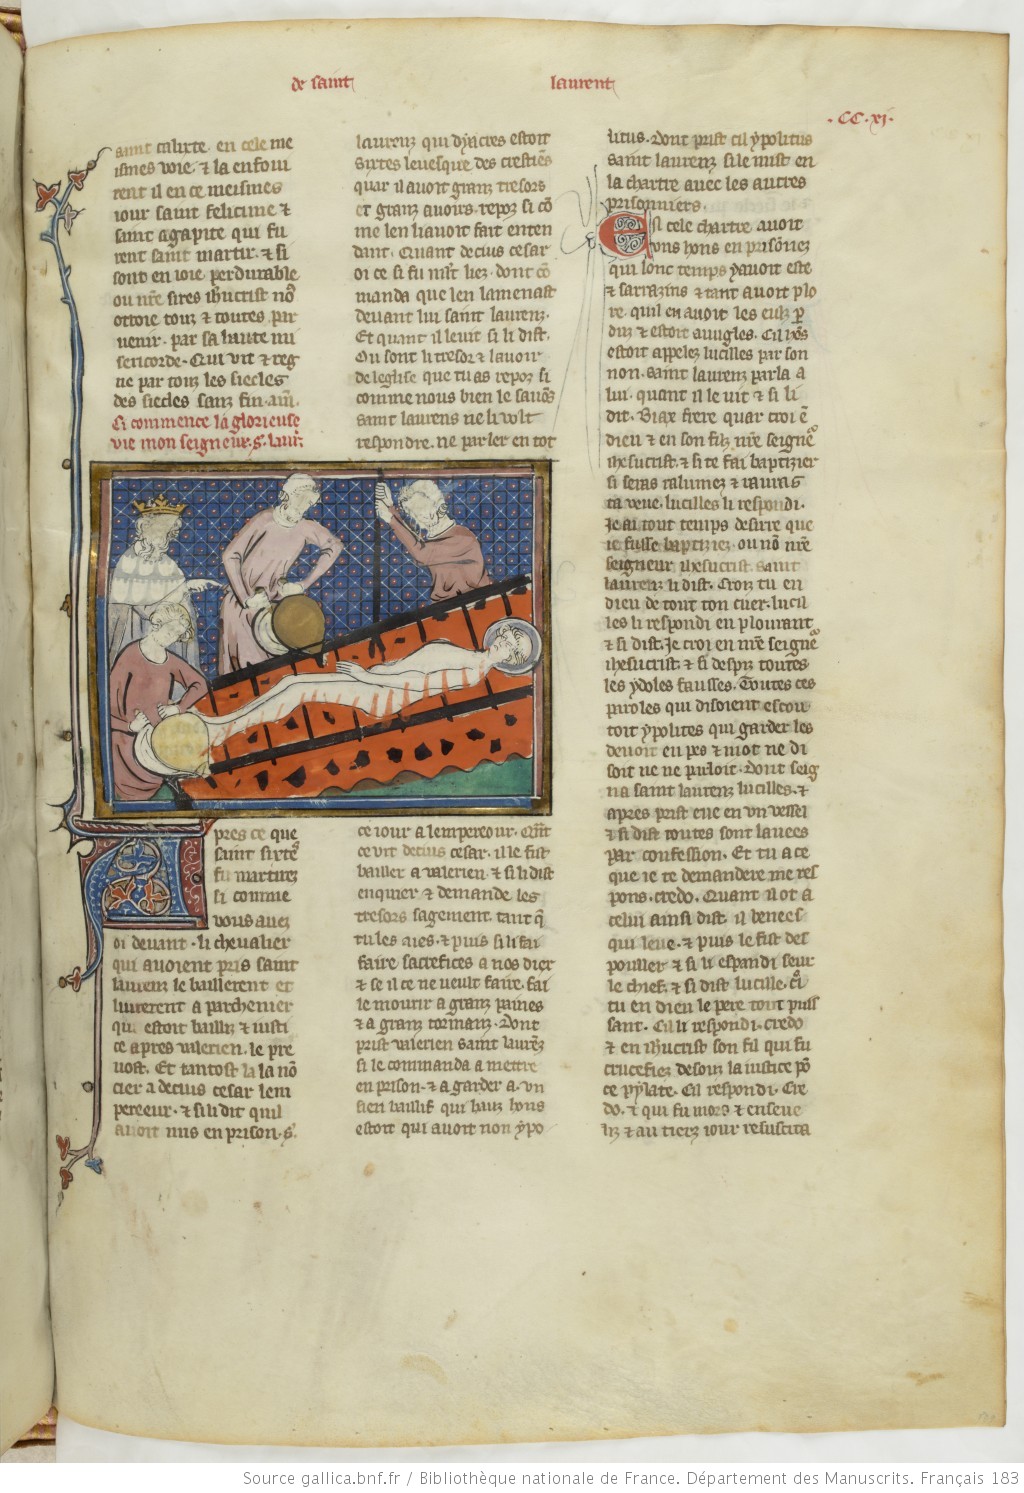 de saint laurent
.CC.xi.
saint calixte. en cele me
ismes voie. ⁊ la enfoui
rent il en ce meismes
iour saint felicime ⁊
saint agapite qui fu
rent saint martir. ⁊ si
sont en ioie perdurable
ou nr̄e sires ih̄ucrist no᷒
ottoie touz ⁊ toutes par
uenir. par sa haute mi
sericorde. Qui vit ⁊ reg
ne par touz les siecles
des siecles sanz fin. am̄.
Ci commence la glorieuse
vie mon seigneur. s. laur̄.
Apres ce que
saint sixte᷒
fu martirez
si comme
vous auez
oi deuant. li cheualier
qui auoient pris saint
laurenz le baillerent et
liurerent a parchenier
qui estoit bailliz ⁊ iusti
ce apres valerien. le pre
uost. Et tantost la la nō
cier a decius cesar lem
pereeur. ⁊ si li dit quil
auoit mis en prison. s᷒.
laurenz qui dyacres estoit
sixtes leuesque des crestiēs
quar il auoit granz tresors
et granz auoirs. repoz si cō
me len li auoit fait enten
dant. Quant decius cesar
oi ce si fu mlt̄ liez. dont cō
manda que len lamenast
deuant lui saint laurenz.
Et quant il leuit si li dist.
Ou sont li tresor ⁊ lauoir
de leglise que tu as repoz si
comme nous bien le sauōs
saint laurens ne li volt
respondre. ne parler en tot
ce iour a lempereour. Qn̄t
ce vit decius cesar. il le fist
bailler a valerien. ⁊ si li dist
enquier ⁊ demande les
tresors sagement. tant q̄
tu les aies. ⁊ puis si li fai
faire sacrefices a nos diex
⁊ se il ce ne veult faire. fai
le mourir a granz paines
⁊ a granz tormanz. Dont
prist valerien saint laurēz
si le commanda a mettre
en prison. ⁊ a garder a. vn
sien baillif qui haiz hons
estoit qui auoit non ypo
litus. Dont prist cil ypolitus
saint laurenz si le mist en
la chartre auec les autres
prisonniers.
En cele chartre auoit
vons hons en prisōnez
qui lonc temps yauoit este
⁊ sarrazins ⁊ tant auoit plo
re. quil en auoit les eulz p̄
duz ⁊ estoit auugles. Cil hōs
estoit appelez lucilles par son
non. saint laurenz parla a
lui. quant il le vit ⁊ si li
dit. Biax frere quar croi ē
dieu ⁊ en son filz nr̄e seignē᷒
ih̄esucrist. ⁊ si te fai baptizier
si seras ralumez ⁊ rauras
ta veue. lucilles li respondi.
Je ai tout temps desirre que
ie fusse baptiziez. ou nō nr̄e
seigneur ih̄esucrist. saint
laurenz li dist. Croiz tu en
dieu de tout ton cuer. lucil
les li respondi en plourant
⁊ si dist. Je croi en nr̄e seignē᷒
ih̄esucrist. ⁊ si despiz toutes
les ydoles fausses. Toutes ces
paroles qui disoient escou
toit ypolites qui garder les
deuoit en pes ⁊ mot ne di
soit ne ne parloit. Dont seig
na saint laurenz lucilles. ⁊
apres prist eue en vn vessel
⁊ si dist toutes sont lauees
par confession. Et tu a ce
que ie te demandere me res
pons. credo. Quant il ot a
celui ainsi dist. il benees
qui leue. ⁊ puis le fist des
pouller ⁊ si li espandi seur
le chief. ⁊ si dist lucille. c᷒oi
tu en dieu le pere tout puis
sant. Cil li respondi. credo
⁊ en ih̄ucrist son fil qui fu
crucefiez desouz la iustice pō
ce pylate. Cil respondi. Cre
do. ⁊ qui fu mors ⁊ enseue
liz ⁊ au tierz iour resuscita
Source gallica.bnf.fr / Bibliothèque nationale de France. Département des Manuscrits. Français 183